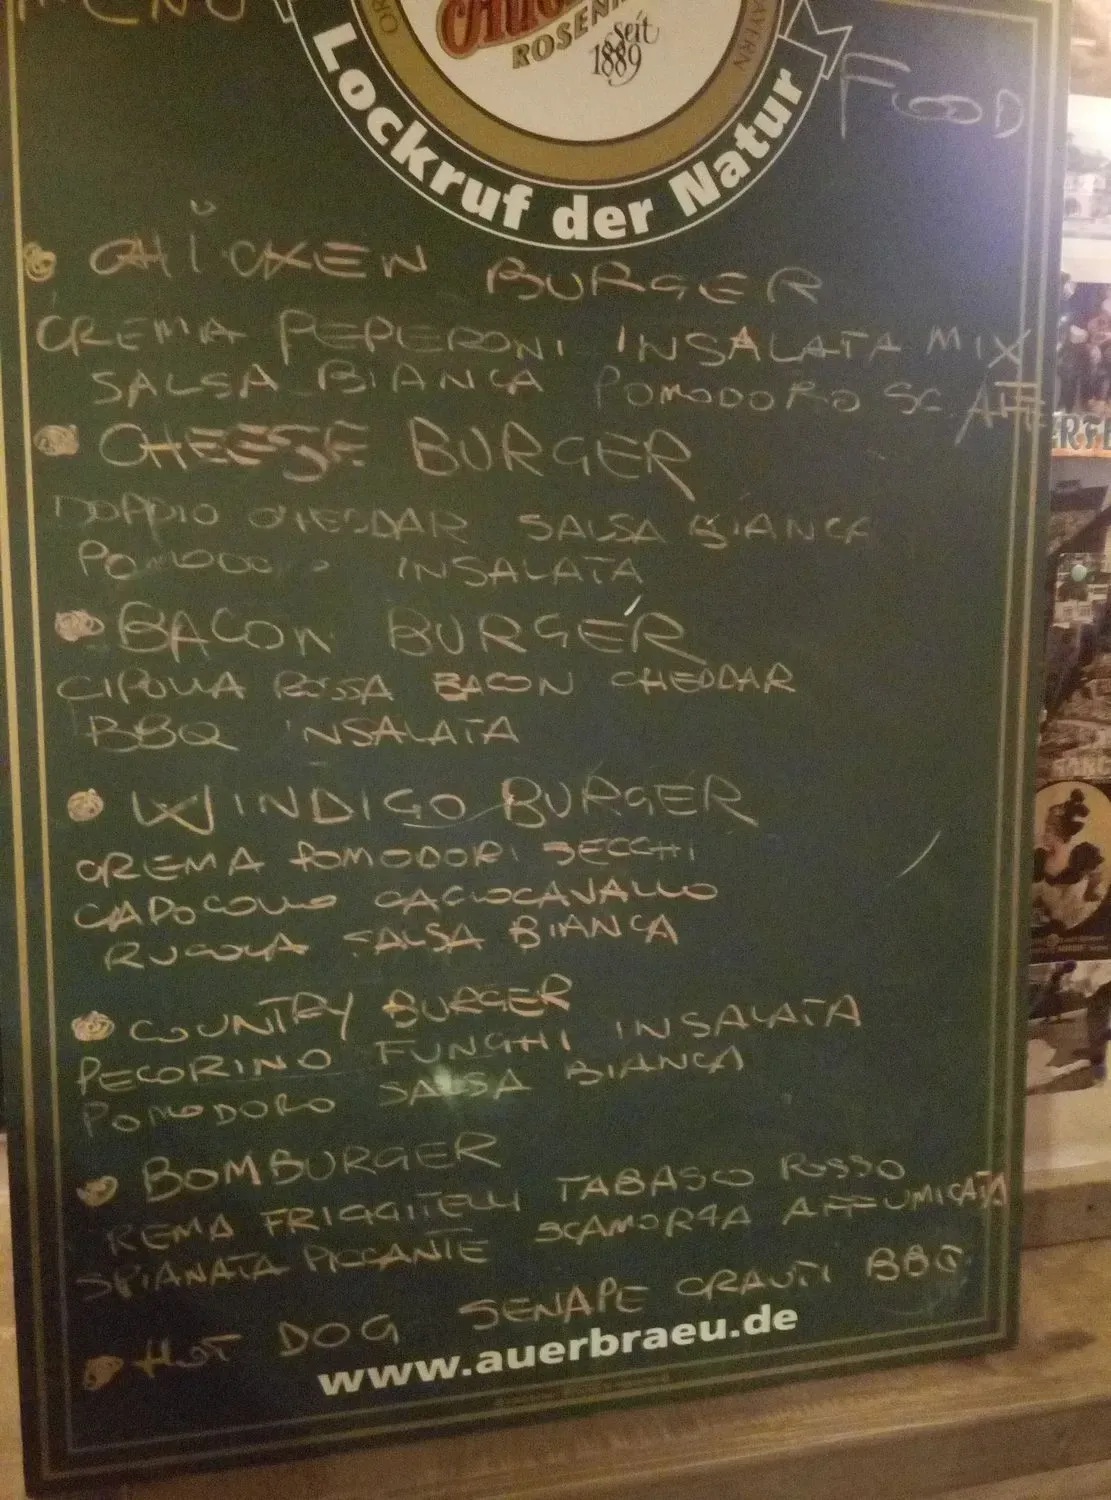 MENU
ROSEN
seit
1889
BAYERN
Lockruf der Natur
FOOD
CHICKEN BURGER
CREMA PEPERONI INSALATA MIX
SALSA BIANCA POMODORO SC. AFF
CHEESE BURGER
DOPPIO CHEDDAR SALSA BIANCA
POMODORO INSALATA
BACON BURGER
CIPOLLA ROSSA BACON CHEDDAR
BBQ INSALATA
WINDIGO BURGER
CREMA POMODORI SECCHI
CAPOCOLLO CACIOCAVALLO
RUCOLA SALSA BIANCA
COUNTRY BURGER
PECORINO FUNGHI INSALATA
POMODORO SALSA BIANCA
BOMBURGER
CREMA FRIGGITELLI TABASCO ROSSO
SPIANATA PICCANTE SCAMORZA AFFUMICATA
HOT DOG SENAPE CRAUTI BBQ
www.auerbraeu.de